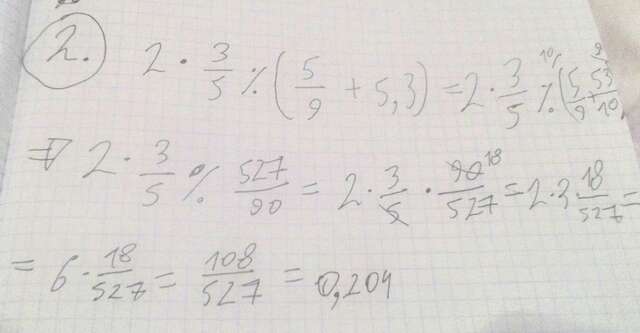 2. 2 · 3/5 ⁒ (5/9 + 5,3) = 2 · 3/5 ⁒ (5/9 + 53/10
⇒ 2 · 3/5 ⁒ 527/90 = 2 · 3/5 · 90 18/527 = 2 · 3 · 18/527 =
= 6 · 18/527 = 108/527 = 0,204